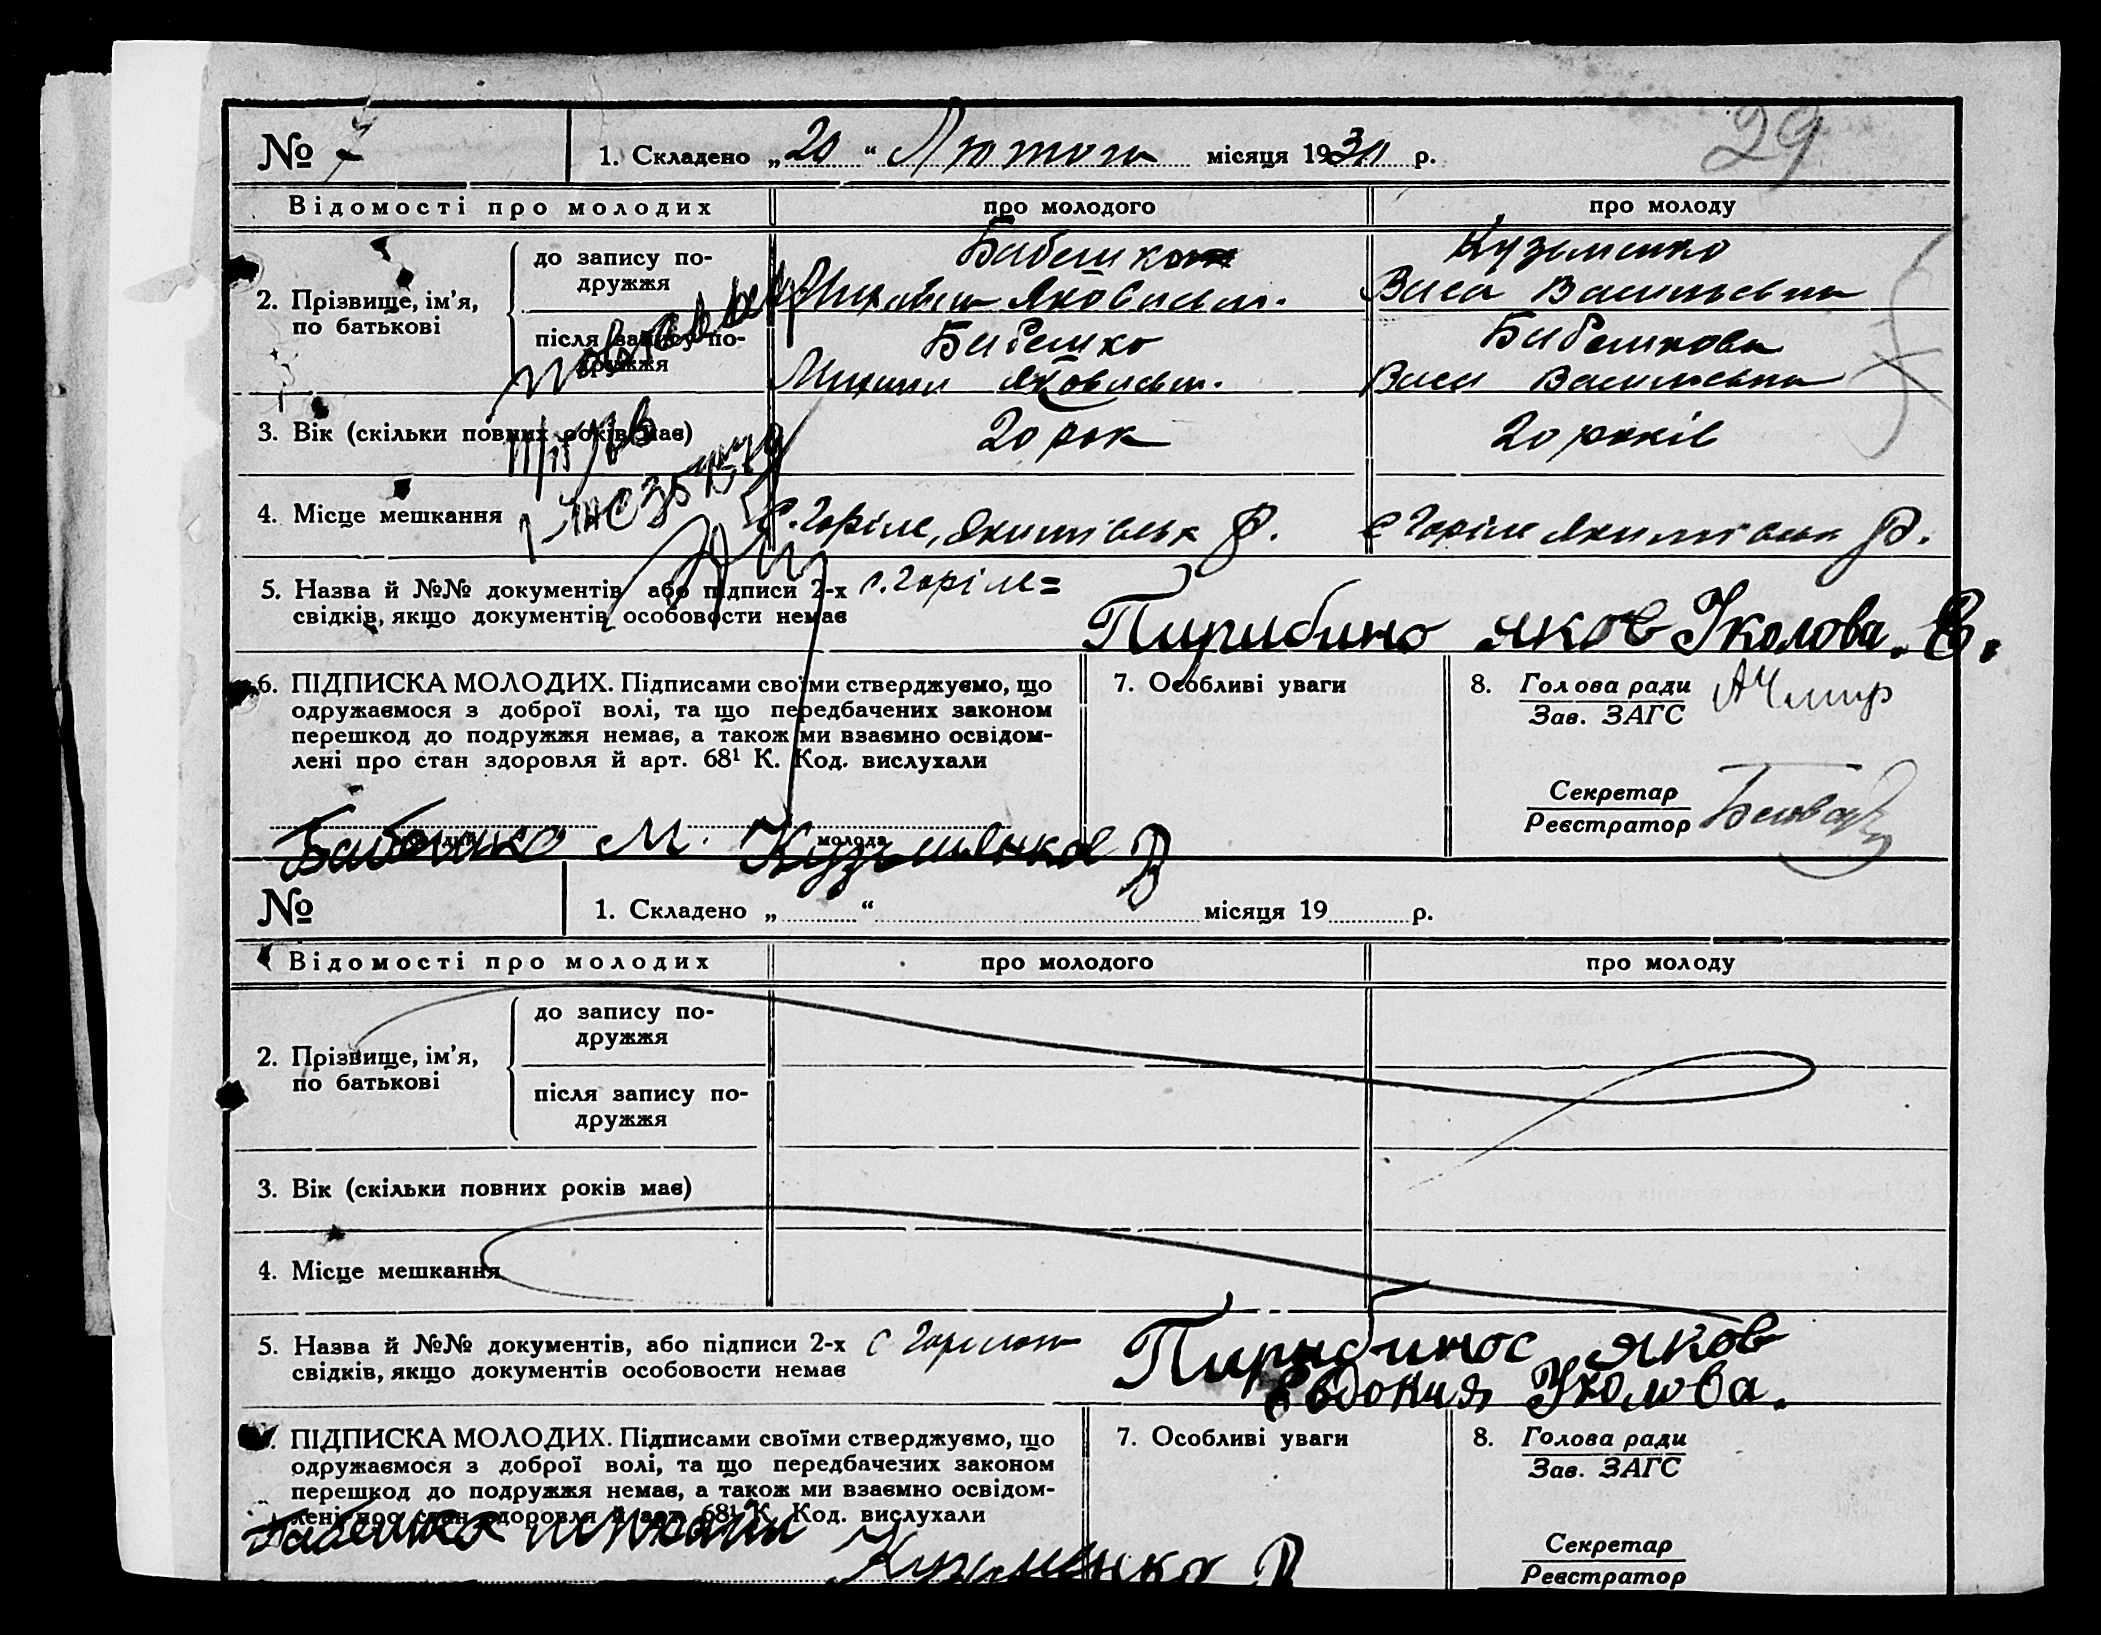 № 7
1. Складено „20“ Лютого місяця 1930 р.
29
Відомості про молодих
про молодого
про молоду
2. Прізвище, ім’я, по батькові
до запису подружжя
Бабешко
Яковлевич
Кузьменко
Васа Васильевна
після запису подружжя
Бабешко
Михаил Яковлевич
Бабешкова
Васа Васильевна
3. Вік (скільки повних років має)
20 рок
20 років
4. Місце мешкання
с. Горіле, Якимівськ Р.
с Горіле Якимівськ Р.
5. Назва й №№ документів, або підписи 2-х
свідків, якщо документів особовости немає
с. Горіле
Яков Уколова. Е.
6. ПІДПИСКА МОЛОДИХ. Підписами своїми стверджуємо, що
одружаємося з доброї волі, та що передбачених законом
перешкод до подружжя немає, а також ми взаємно освідом-
лені про стан здоровля й арт. 68¹ К. Код. вислухали
7. Особливі уваги
8. Голова ради
Зав. ЗАГС
Секретар
Реєстратор
молода
Бабешко М. Кузьменко В
№
1. Складено „ “ місяця 19 р.
Відомості про молодих
про молодого
про молоду
2. Прізвище, ім’я, по батькові
до запису подружжя
після запису подружжя
3. Вік (скільки повних років має)
4. Місце мешкання
5. Назва й №№ документів, або підписи 2-х
свідків, якщо документів особовости немає
с
Яков
Евдокия Уколова.
ПІДПИСКА МОЛОДИХ. Підписами своїми стверджуємо, що
одружаємося з доброї волі, та що передбачених законом
перешкод до подружжя немає, а також ми взаємно освідом-
лені про стан здоровля й арт. 68¹ К. Код. вислухали
7. Особливі уваги
8. Голова ради
Зав. ЗАГС
Секретар
Реєстратор
Бабешко
Кузменко В